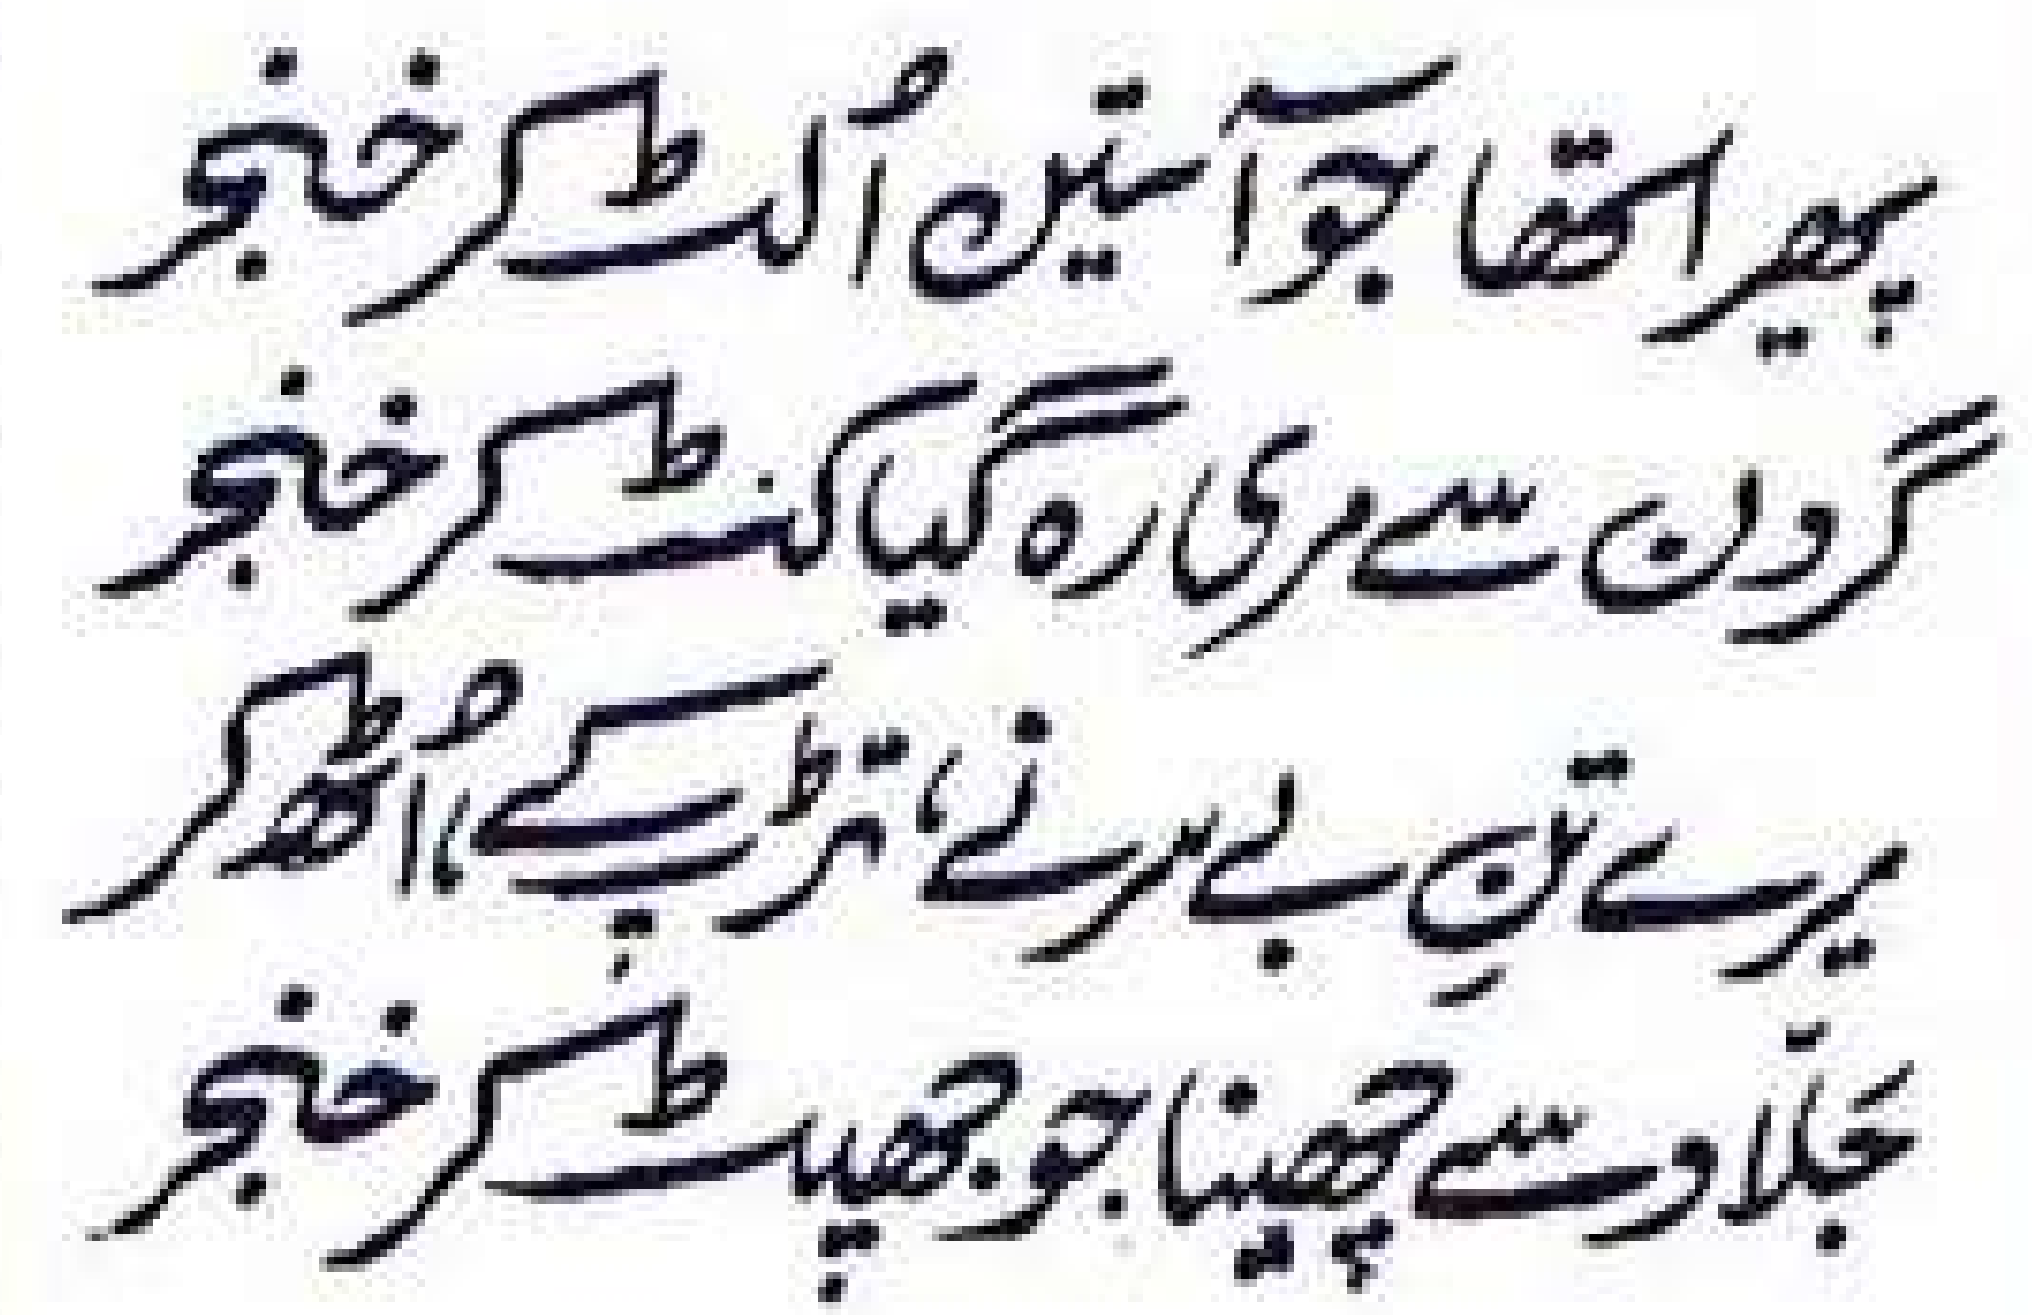 پھیرا تھا جو آستیں اُلٹ کر خنجر
گردن سے مری رہ گیا کٹ کر خنجر
میرے تنِ بے سر نے، تڑپ کے، اُٹھ کر
جلّاد سے چھینا جو جھپٹ کر خنجر